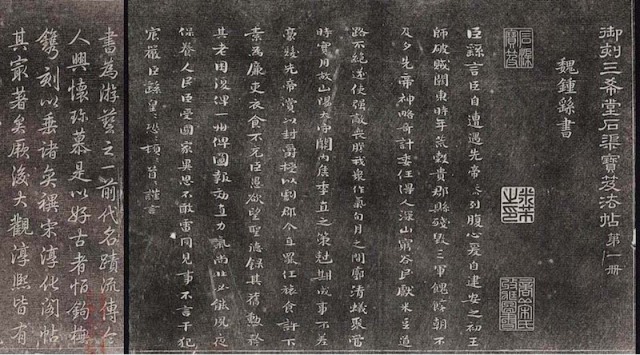 御刻三希堂石渠寶笈法帖第一冊
魏鍾繇書
石渠寶笈
臣繇言臣自遭遇先帝忝列腹心爰自建安之初王
師破賊關東時年荒穀貴郡縣殘毀三軍餽饟朝不
及夕先帝神略奇計委任得人深山窮谷民獻米豆道
路不絕遂使強敵喪膽我衆作氣旬月之間廓清蟻聚當
時實用故山陽太守關內侯季直之策尅期成事不差
豪髮先帝賞以封爵授以劇郡今直罷任旅食許下
素為廉吏衣食不充臣愚欲望聖德錄其舊勳矜
其老困復俾一州俾圖報効直力氣尚壯必能夙夜
保養人民臣受國家異恩不敢雷同見事不言干犯
宸嚴臣繇皇〻恐〻頓〻首〻謹言
書為游藝之一前代名蹟流傳令
人興懷珍慕是以好古者恒鉤橅
鐫刻以垂諸久禩宋淳化閣帖
其最著矣厥後大觀淳熙皆有